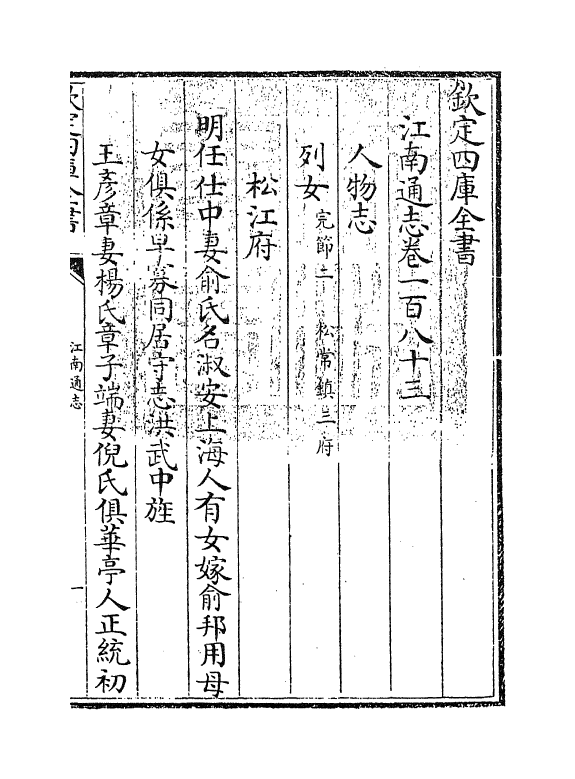 欽定四庫全書
江南通志卷一百八十三
人物志
列女 完節二 松常鎮三府
松江府
明任仕中妻俞氏名淑安上海人有女嫁俞邦用母
女俱係早寡同居守志洪武中旌
王彥章妻楊氏章子端妻倪氏俱華亭人正統初
欽定四庫全書
江南通志
一